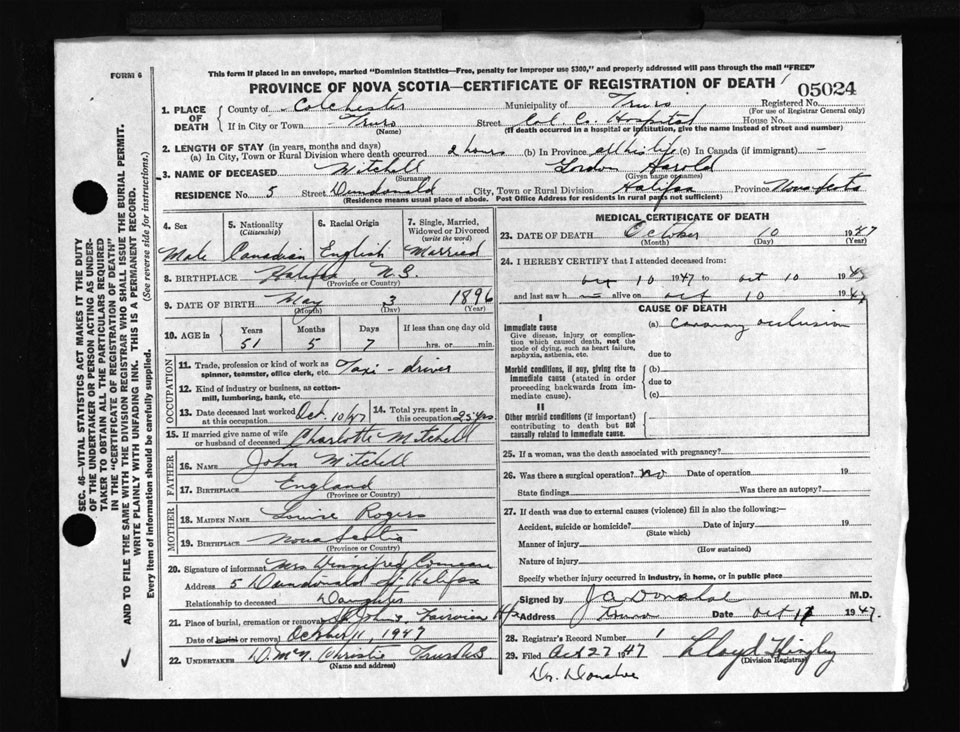 FORM 6
This form if placed in an envelope, marked "Dominion Statistics—Free, penalty for improper use $300," and properly addressed will pass through the mail "FREE"
PROVINCE OF NOVA SCOTIA—CERTIFICATE OF REGISTRATION OF DEATH
05024
1. PLACE OF DEATH
County of Colchester Municipality of Truro Registered No.
(For use of Registrar General only)
If in City or Town Truro Street Col. Co. Hospital House No.
(Name) (If death occurred in a hospital or institution, give the name instead of street and number)
2. LENGTH OF STAY (in years, months and days)
(a) In City, Town or Rural Division where death occurred 2 hours (b) In Province all his life (c) In Canada (if immigrant) —
3. NAME OF DECEASED Mitchell Gordon Harold
(Surname) (Given name or names)
RESIDENCE No. 5 Street Dundonald City, Town or Rural Division Halifax Province Nova Scotia
(Residence means usual place of abode. Post Office Address for residents in rural parts not sufficient)
4. Sex 5. Nationality (Citizenship) 6. Racial Origin 7. Single, Married, Widowed or Divorced (write the word)
Male Canadian English Married
8. BIRTHPLACE Halifax N.S.
(Province or Country)
9. DATE OF BIRTH May 3 1896
(Month) (Day) (Year)
10. AGE in Years Months Days If less than one day old
51 5 7 hrs. or min.
OCCUPATION
11. Trade, profession or kind of work as spinner, teamster, office clerk, etc. Taxi-driver
12. Kind of industry or business, as cotton-mill, lumbering, bank, etc.
13. Date deceased last worked at this occupation Oct. 10/47 14. Total yrs. spent in this occupation 25 yrs.
15. If married give name of wife or husband of deceased Charlotte Mitchell
FATHER
16. NAME John Mitchell
17. BIRTHPLACE England
(Province or Country)
MOTHER
18. MAIDEN NAME Louise Rogers
19. BIRTHPLACE Nova Scotia
(Province or Country)
20. Signature of informant Mrs Winnifred Comeau
Address 5 Dundonald St Halifax
Relationship to deceased Daughter
21. Place of burial, cremation or removal St. Johns, Fairview Hfx
Date of burial or removal October 11, 1947
22. UNDERTAKER D. McN. Christie Truro N.S
(Name and address)
MEDICAL CERTIFICATE OF DEATH
23. DATE OF DEATH October 10 1947
(Month) (Day) (Year)
24. I HEREBY CERTIFY that I attended deceased from:
oct 10 1947 to oct 10 1947
and last saw h— alive on oct 10 1947
CAUSE OF DEATH
I
Immediate cause (a) coronary occlusion
Give disease, injury or complication which caused death, not the mode of dying, such as heart failure, asphyxia, asthenia, etc.
due to
Morbid conditions, if any, giving rise to immediate cause (stated in order proceeding backwards from immediate cause).
(b)
due to
(c)
II
Other morbid conditions (if important) contributing to death but not causally related to immediate cause.
25. If a woman, was the death associated with pregnancy?
26. Was there a surgical operation? no Date of operation 19
State findings Was there an autopsy?
27. If death was due to external causes (violence) fill in also the following:—
Accident, suicide or homicide? Date of injury 19
(State which)
Manner of injury
(How sustained)
Nature of injury
Specify whether injury occurred in industry, in home, or in public place
Signed by J A Donahoe M.D.
Address Truro Date oct 11 1947.
28. Registrar's Record Number 1
29. Filed Oct 27 1947 Lloyd
(Division Registrar)
Dr. Donahoe
SEC. 46—VITAL STATISTICS ACT MAKES IT THE DUTY
OF THE UNDERTAKER OR PERSON ACTING AS UNDER-
TAKER TO OBTAIN ALL THE PARTICULARS REQUIRED
IN THE "CERTIFICATE OF REGISTRATION OF DEATH"
AND TO FILE THE SAME WITH THE DIVISION REGISTRAR WHO SHALL ISSUE THE BURIAL PERMIT.
WRITE PLAINLY WITH UNFADING INK. THIS IS A PERMANENT RECORD.
Every item of information should be carefully supplied. (See reverse side for instructions.)